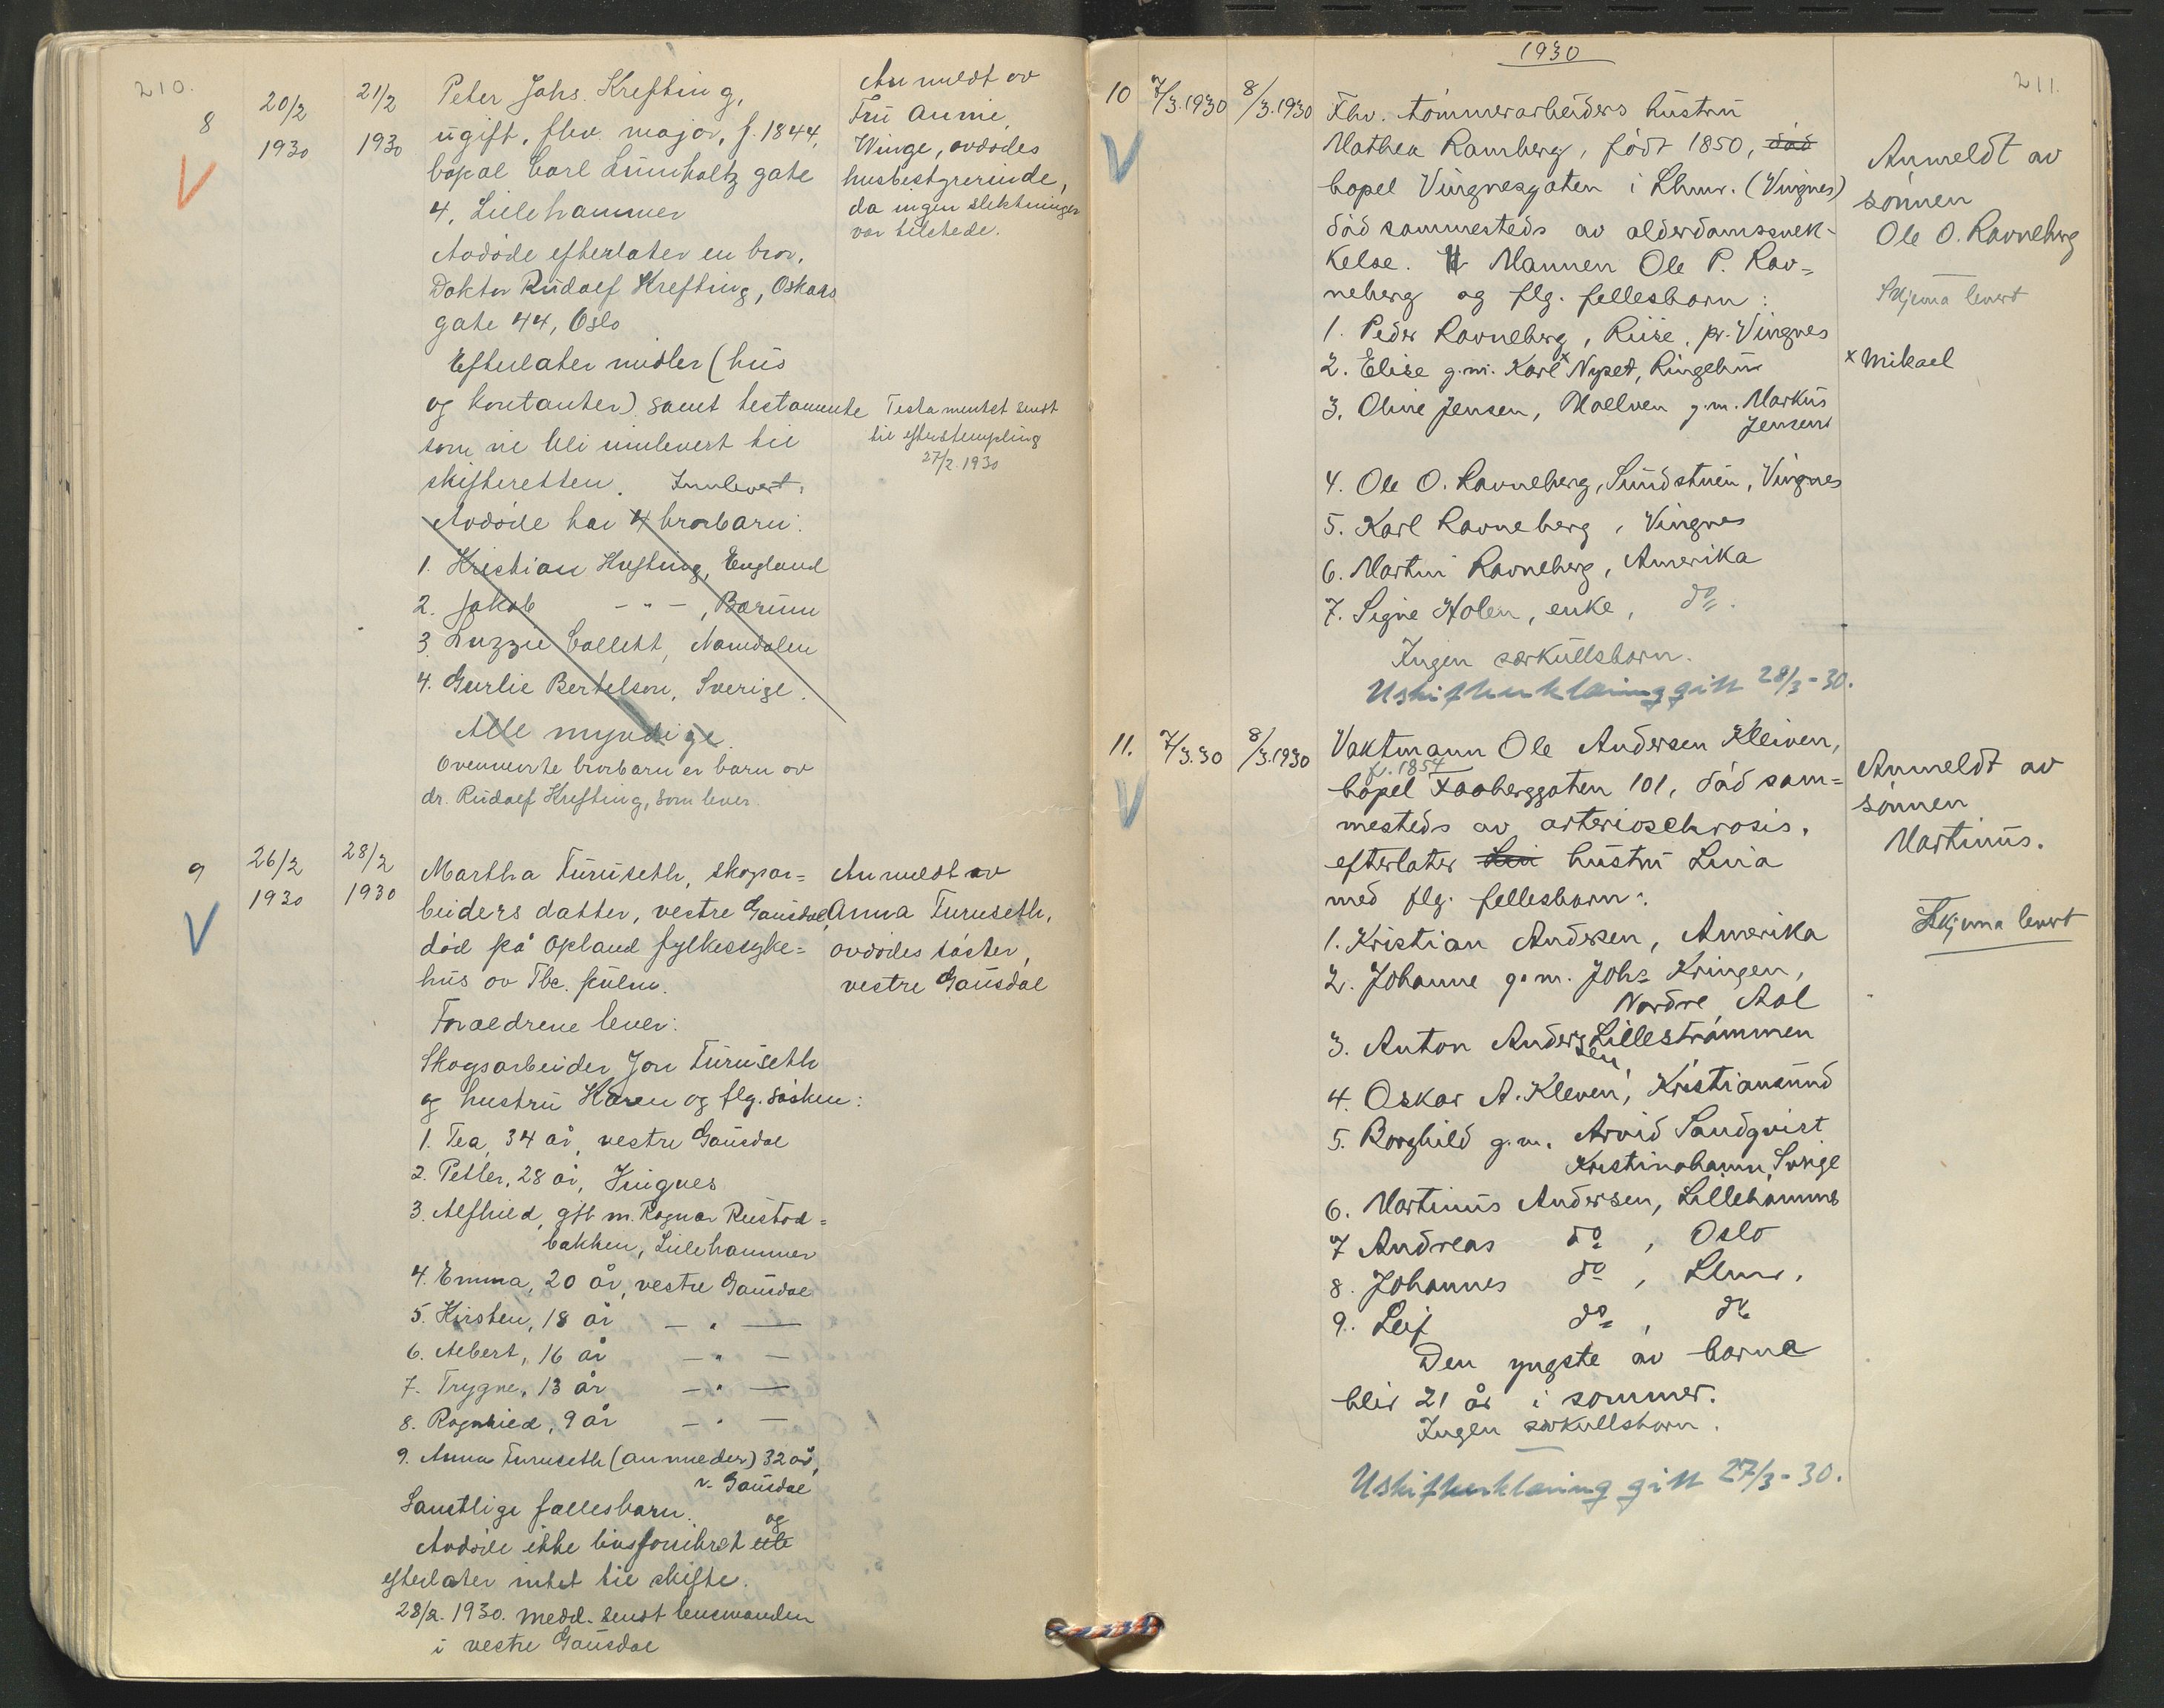 210.
8
20/2
1930
21/2
1930
Peter Johs. Krefting,
ugift, fhv. major, f. 1844,
bopæl Carl Lumholtz gate
4, Lillehammer
Avdøde efterlater en bror,
Doktor Rudolf Krefting, Oskars
gate 44, Oslo
Efterlater midler (hus
og kontanter) samt testamente
som vil bli innlevert til
skifteretten. Innlevert.
Avdøde har 4 brorbarn:
1. Kristian Krefting, England
2. Jakob — " — , Bærum
3. Luzzie Collett, Namdalen
4. Gurlie Bertelson, Sverige.
Alle myndige.
Ovennevnte brorbarn er barn av
dr. Rudolf Krefting, som lever.
Anmeldt av
Fru Annie
Winge, avdødes
husbestyrerinde,
da ingen slektninger
var tilstede.
Testamentet sendt
til efterstempling
27/2. 1930
9
26/2
1930
28/2
1930
Martha Furuseth, skogar=
beiders datter, vestre Gausdal,
død på Opland fylkessyke=
hus av Tbc. pulm.
Foreldrene lever:
Skogsarbeider Jon Furuseth
og hustru Karen og flg. søsken:
1. Tea, 34 år, vestre Gausdal
2. Petter, 28 år, Vingnes
3. Alfhild, gift m. Ragnar Rustad=
bakken, Lillehammer
4. Emma, 20 år, vestre Gausdal
5. Kirsten, 18 år — " —
6. Albert, 16 år — " —
7. Trygve, 13 år — " —
8. Ragnhild, 9 år — " —
9. Anna Furuseth (anmelder) 32 år,
v. Gausdal
Samtlige fællesbarn.
og
Avdøde ikke livsforsikret
efterlater intet til skifte.
28/2. 1930. medd. sendt lensmanden
i vestre Gausdal
Anmeldt av
Anna Furuseth,
avdødes søster,
vestre Gausdal
1930
211.
10
7/3.1930
8/3.1930
Fhv. tømmerarbeiders hustru
Mathea Ramberg, født 1850, død
bopel Vingnesgaten i Lhmr. (Vingnes)
død sammesteds av alderdomssvek-
kelse. Mannen Ole P. Rav=
neberg og flg. fellesbarn:
1. Peder Ravneberg, Riise, pr. Vingnes
2. Elise g.m. Karl x Nyset, Ringebu
3. Oline Jensen, Moelven g.m. Markus
Jensen
4. Ole O. Ravneberg, Sundstuen, Vingnes
5. Karl Ravneberg, Vingnes
6. Martin Ravneberg, Amerika
7. Signe Holen, enke, do.
Ingen særkullsbarn.
Uskifteerklæring gitt 28/3-30.
Anmeldt av
sønnen
Ole O. Ravneberg
Skjema levert
x Mikael
11.
7/3.30
8/3.1930
Vaktmann Ole Andersen Kleiven,
f. 1854
bopel Faaberggaten 101, død sam=
mesteds av arteriosclerosis.
efterlater hustru Lina
med flg. fellesbarn:
1. Kristian Andersen, Amerika
2. Johanne g.m. Johs Kringen,
Nordre Aal
3. Anton Andersen, Lillestrømmen
4. Oskar A. Kleven, Kristiansund
5. Borghild g.m. Arvid Sandqvist
Kristinahamn, Sverige
6. Martinus Andersen, Lillehammer
7 Andreas do , Oslo
8. Johannes do , Lhmr.
9. Leif do , do
Den yngste av barna
blir 21 år i sommer.
Ingen særkullsbarn.
Uskifteerklæring gitt 27/3-30.
Anmeldt av
sønnen
Martinus.
Skjema levert